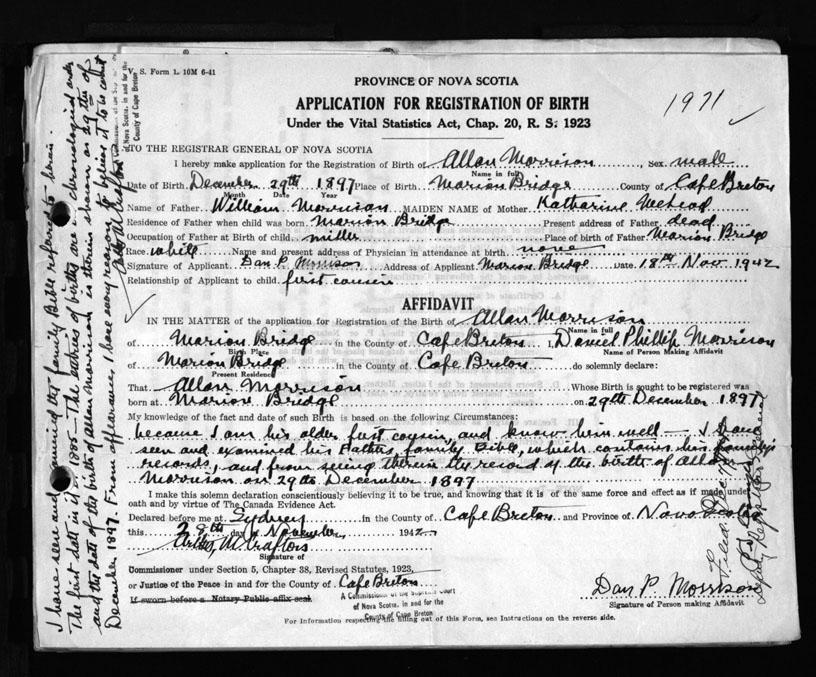 V. S. Form 1. 10M 6-41
PROVINCE OF NOVA SCOTIA
APPLICATION FOR REGISTRATION OF BIRTH
Under the Vital Statistics Act, Chap. 20, R. S. 1923
1971
TO THE REGISTRAR GENERAL OF NOVA SCOTIA
I hereby make application for the Registration of Birth of Allan Morrison, Sex male
Name in full
Date of Birth December 29th 1897 Place of Birth Marion Bridge County of Cape Breton
Month Date Year
Name of Father William Morrison MAIDEN NAME of Mother Katharine
Residence of Father when child was born Marion Bridge Present address of Father dead
Occupation of Father at Birth of child miller Place of birth of Father Marion Bridge
Race white Name and present address of Physician in attendance at birth none
Signature of Applicant Dan P. Morrison Address of Applicant Marion Bridge Date 18th Nov 1942
Relationship of Applicant to child first cousin
AFFIDAVIT
IN THE MATTER of the application for Registration of the Birth of Allan Morrison
Name in full
of Marion Bridge in the County of Cape Breton I, Daniel Phillip Morrison
Birth Place Name of Person Making Affidavit
of Marion Bridge in the County of Cape Breton do solemnly declare:
Present Residence
That Allan Morrison Whose Birth is sought to be registered was
born at Marion Bridge on 29th December 1897
My knowledge of the fact and date of such Birth is based on the following Circumstances:
because I am his older first cousin, and know him well - & I have
seen and examined his Fathers, family Bible, which contains his family's
records, and from seeing therein the record of the birth of Allan
Morrison on 29th December 1897
I make this solemn declaration conscientiously believing it to be true, and knowing that it is of the same force and effect as if made under
oath and by virtue of The Canada Evidence Act.
Declared before me at Sydney in the County of Cape Breton and Province of Nova Scotia
this 28th day of November 1942
Signature of
Commissioner under Section 5, Chapter 38, Revised Statutes, 1923,
or Justice of the Peace in and for the County of Cape Breton
If sworn before a Notary Public affix seal.
A Commissioner of the Supreme Court
of Nova Scotia, in and for the
County of Cape Breton
Dan P. Morrison
Signature of Person making Affidavit
For Information respecting the filling out of this Form, see Instructions on the reverse side.
I have seen and examined the family Bible referred to herein.
The first date in it is 1885 - The entries of births are in chronological order
and the date of the birth of Allan Morrison is therein shown as 29th of
December 1897. From appearance I have every reason to believe it to be correct
of Nova Scotia, in and for the
County of Cape Breton